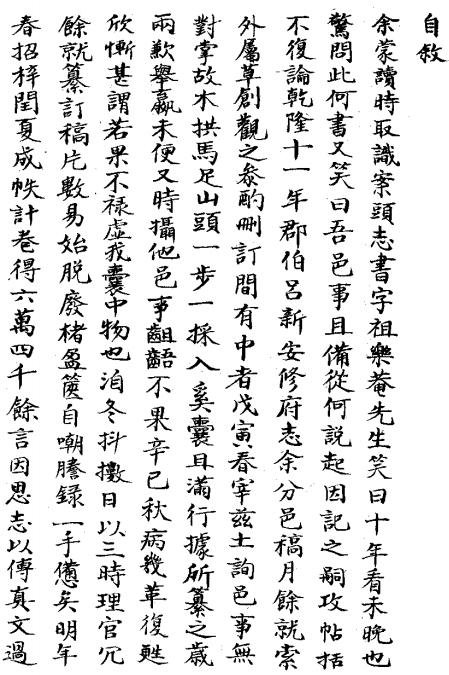 自敘
余蒙讀時取識案頭志書字祖樂菴先生笑曰十年看未晚也
驚問此何書又笑曰吾邑事且備從何說起因記之嗣攻帖括
不復論乾隆十一年郡伯呂新安修府志余分邑稿月餘就索
外屬草創觀之叅酌刪訂間有中者戊寅春宰茲土詢邑事無
對掌故木拱馬足山頭一步一採入奚囊且滿行據所纂之歲
兩歉舉羸未便又時攝他邑事齟齬不果辛巳秋病幾革復甦
欣慚甚謂若果不祿虛我囊中物也洎冬抖擻日以三時理官冗
餘就纂訂稿片數易始脫廢楮盈篋自嘲謄錄一手憊矣明年
春招梓閏夏成帙計卷得六萬四千餘言因思志以傳真文過